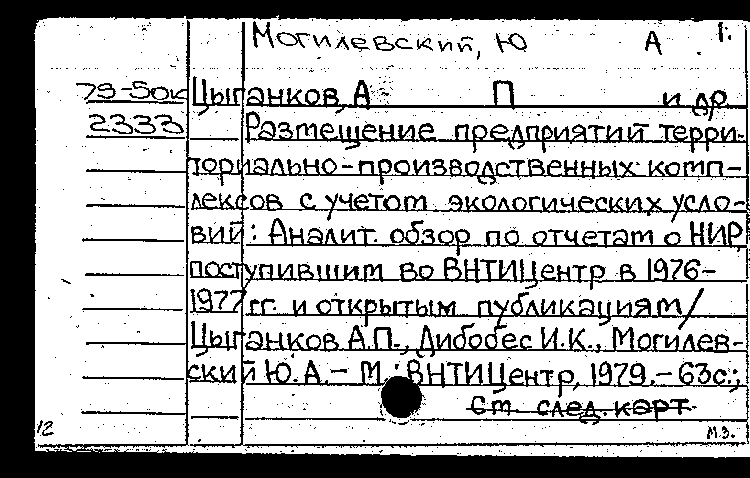 Могилевский, Ю А 1.
79-50к Цыганков, А П и др
2333 Размещение предприятий терри-
ториально-производственных комп-
лексов с учетом экологических усло-
вий: Аналит. обзор по отчетам о НИР,
поступившим во ВНТИЦентр в 1976-
1977 гг. и открытым публикациям/
Цыганков А.П., Дибобес И.К., Могилев-
ский Ю.А.- М.: ВНТИЦентр, 1979.- 63с.;
См. след. карт.
12 М.З.